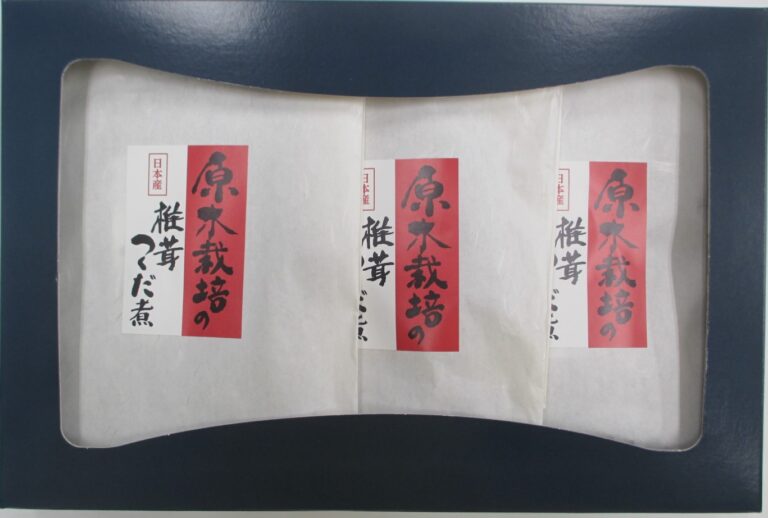 原木栽培の
日本産
椎茸
つくだ煮
原木栽培の
日本産
椎茸
くだ煮
原木栽培の
日本産
椎茸
くだ煮